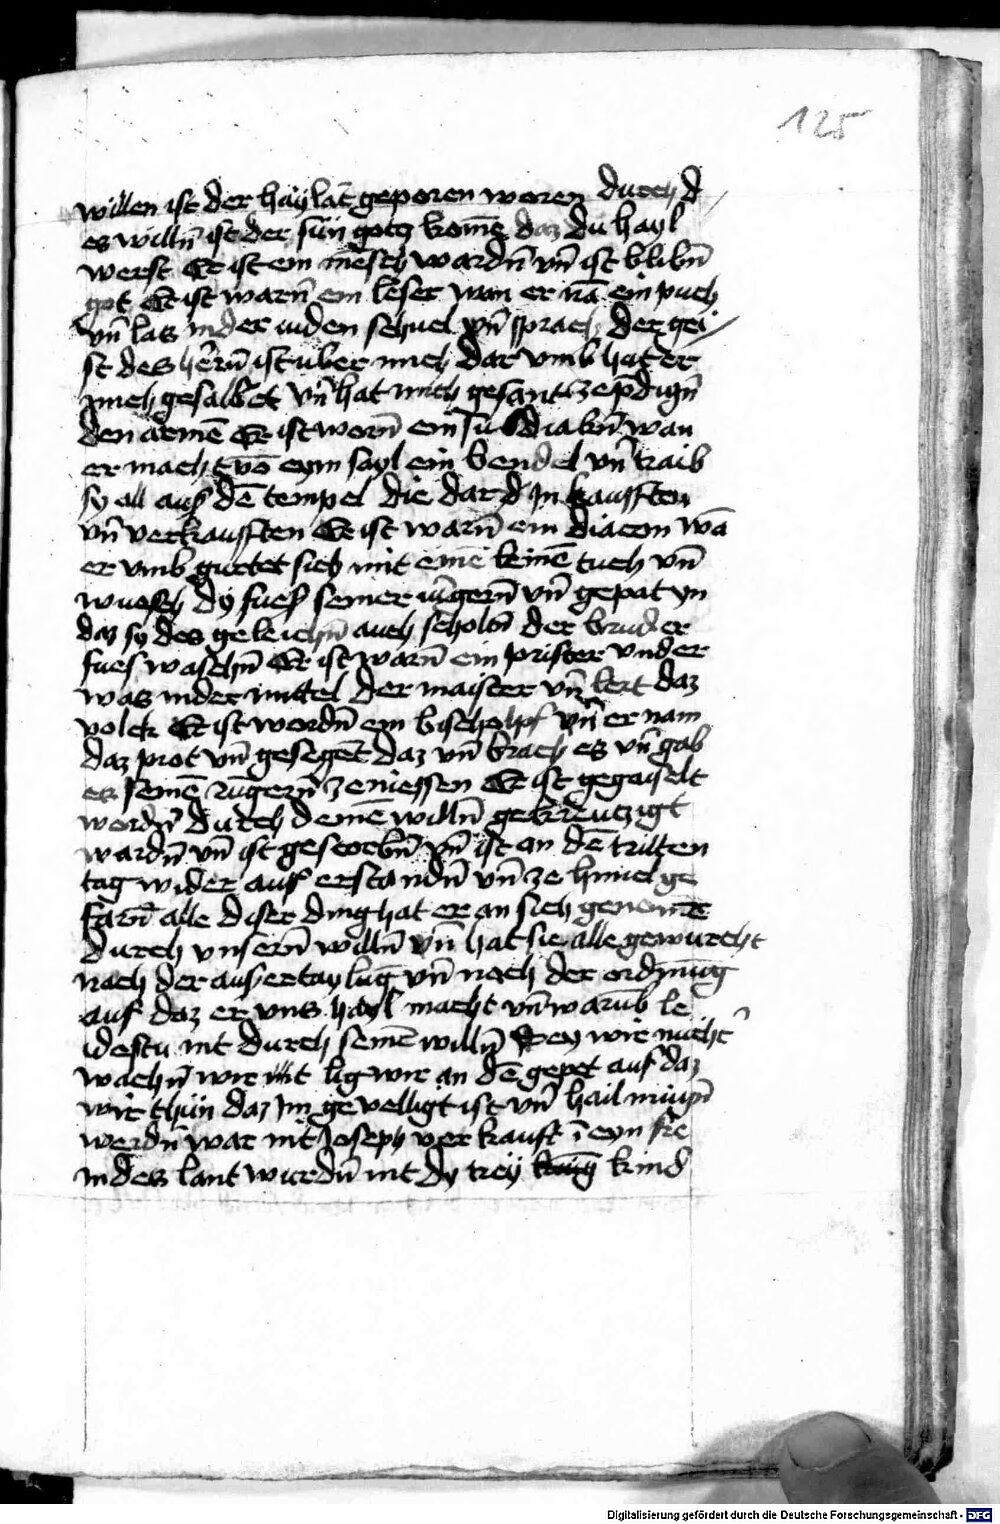 125
willen ist der haylāt geporen woren durch d
es willn̄ ist der sün gotz komē daz du hayl
werst Er ist ein mēsch wardn̄ vn̄ ist blibn̄
got Er ist warn̄ ein leser wan er nā ein puch
vn̄ las in der iuden schuel vn̄ sprach der gei
st des her̄n ist uber mich dar vmb hat er
mich gesalbet vn̄ hat mich gesant ze p̄dign̄
den armē Er ist worn̄ ein subdiakn̄ wan
er macht vō eym sayl ein bendel vn̄ traib
sy all aus dē tempel die dar Jn kaufften
vn̄ verkaufften Er ist warn̄ ein diacon wā
er vmb gurtet sich mit einē leinē tuch vn̄
wuesch dy fues seiner iūgern̄ vn̄ gepat yn
daz sy des geleichn̄ auch scholn̄ der bruder
fues waschn̄ Er ist warn̄ ein prister vnd er
was in der mittel der maister vn̄ lert daz
volck Er ist wordn̄ ein bischolpf vn̄ er nam
daz prot vn̄ gesegēt daz vn̄ brach es vn̄ gab
es seinē iūgern̄ ze niessen Er ist gegayselt
wordn̄ durch deinē willn̄ gekreutzigt
wardn̄ vn̄ ist gestorbn̄ vn̄ ist an dē tritten
tag wider auf erstandn̄ vn̄ ze himel ge
farn̄ alle diser ding hat er an sich genomē
durch vnsern̄ willn̄ vn̄ hat sie alle gewurcht
nach der ausertaylūg vn̄ noch der ordnūg
auf daz er vns hayl macht vn̄ warūb le
idestu nit durch seinē willn̄ Sey wir nucht̄
wachn̄ wir lig wir an dē gepet auf daz
wir thün daz Jm gevelligt ist vn̄ hail mūgn̄
werdn̄ war nit Joseph verkauft ī eyn fre
indes lant wurdn̄ nit dy trey kind
Digitalisierung gefördert durch die Deutsche Forschungsgemeinschaft - DFG